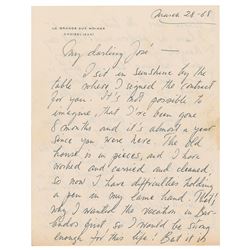 March 28-68
LE GRANDE AUX MOINES
My darling José —
I sit in sunshine by the
table where I signed the contract
for you. It's not possible to
imagine, that I've been gone
8 months and it's almost a year
since you were here. The old
house is in pieces, and I have
worked and carried and cleaned
so now I have difficulties holding
a pen in my lame hand. That's
why I wanted the vacation in Bar-
bados first, so I would be strong
enough for this life! But it is